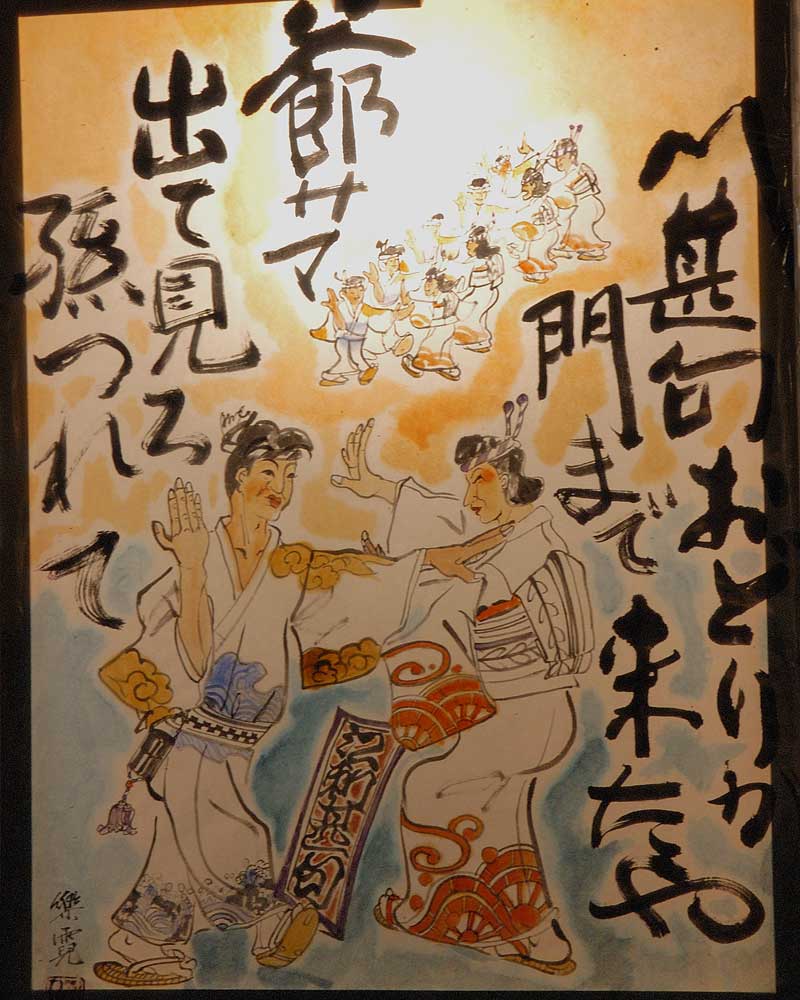 〽甚句おどりが
門まで来たや
爺サマ
出て見ろ
孫つれて
江刺甚句